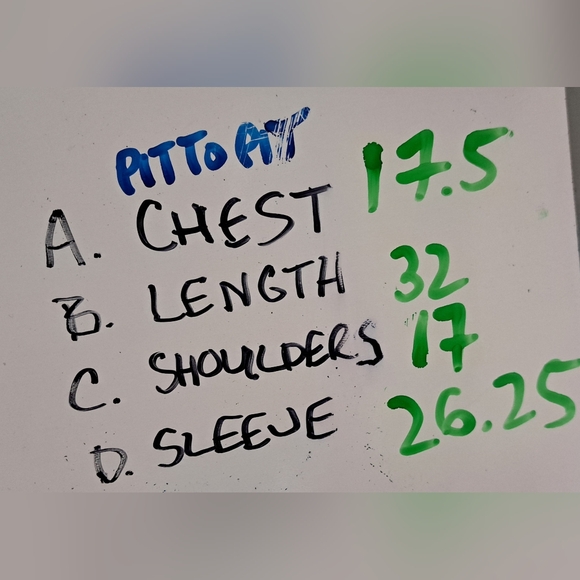 PIT TO PIT
A. CHEST 17.5
B. LENGTH 32
C. SHOULDERS 17
D. SLEEVE 26.25